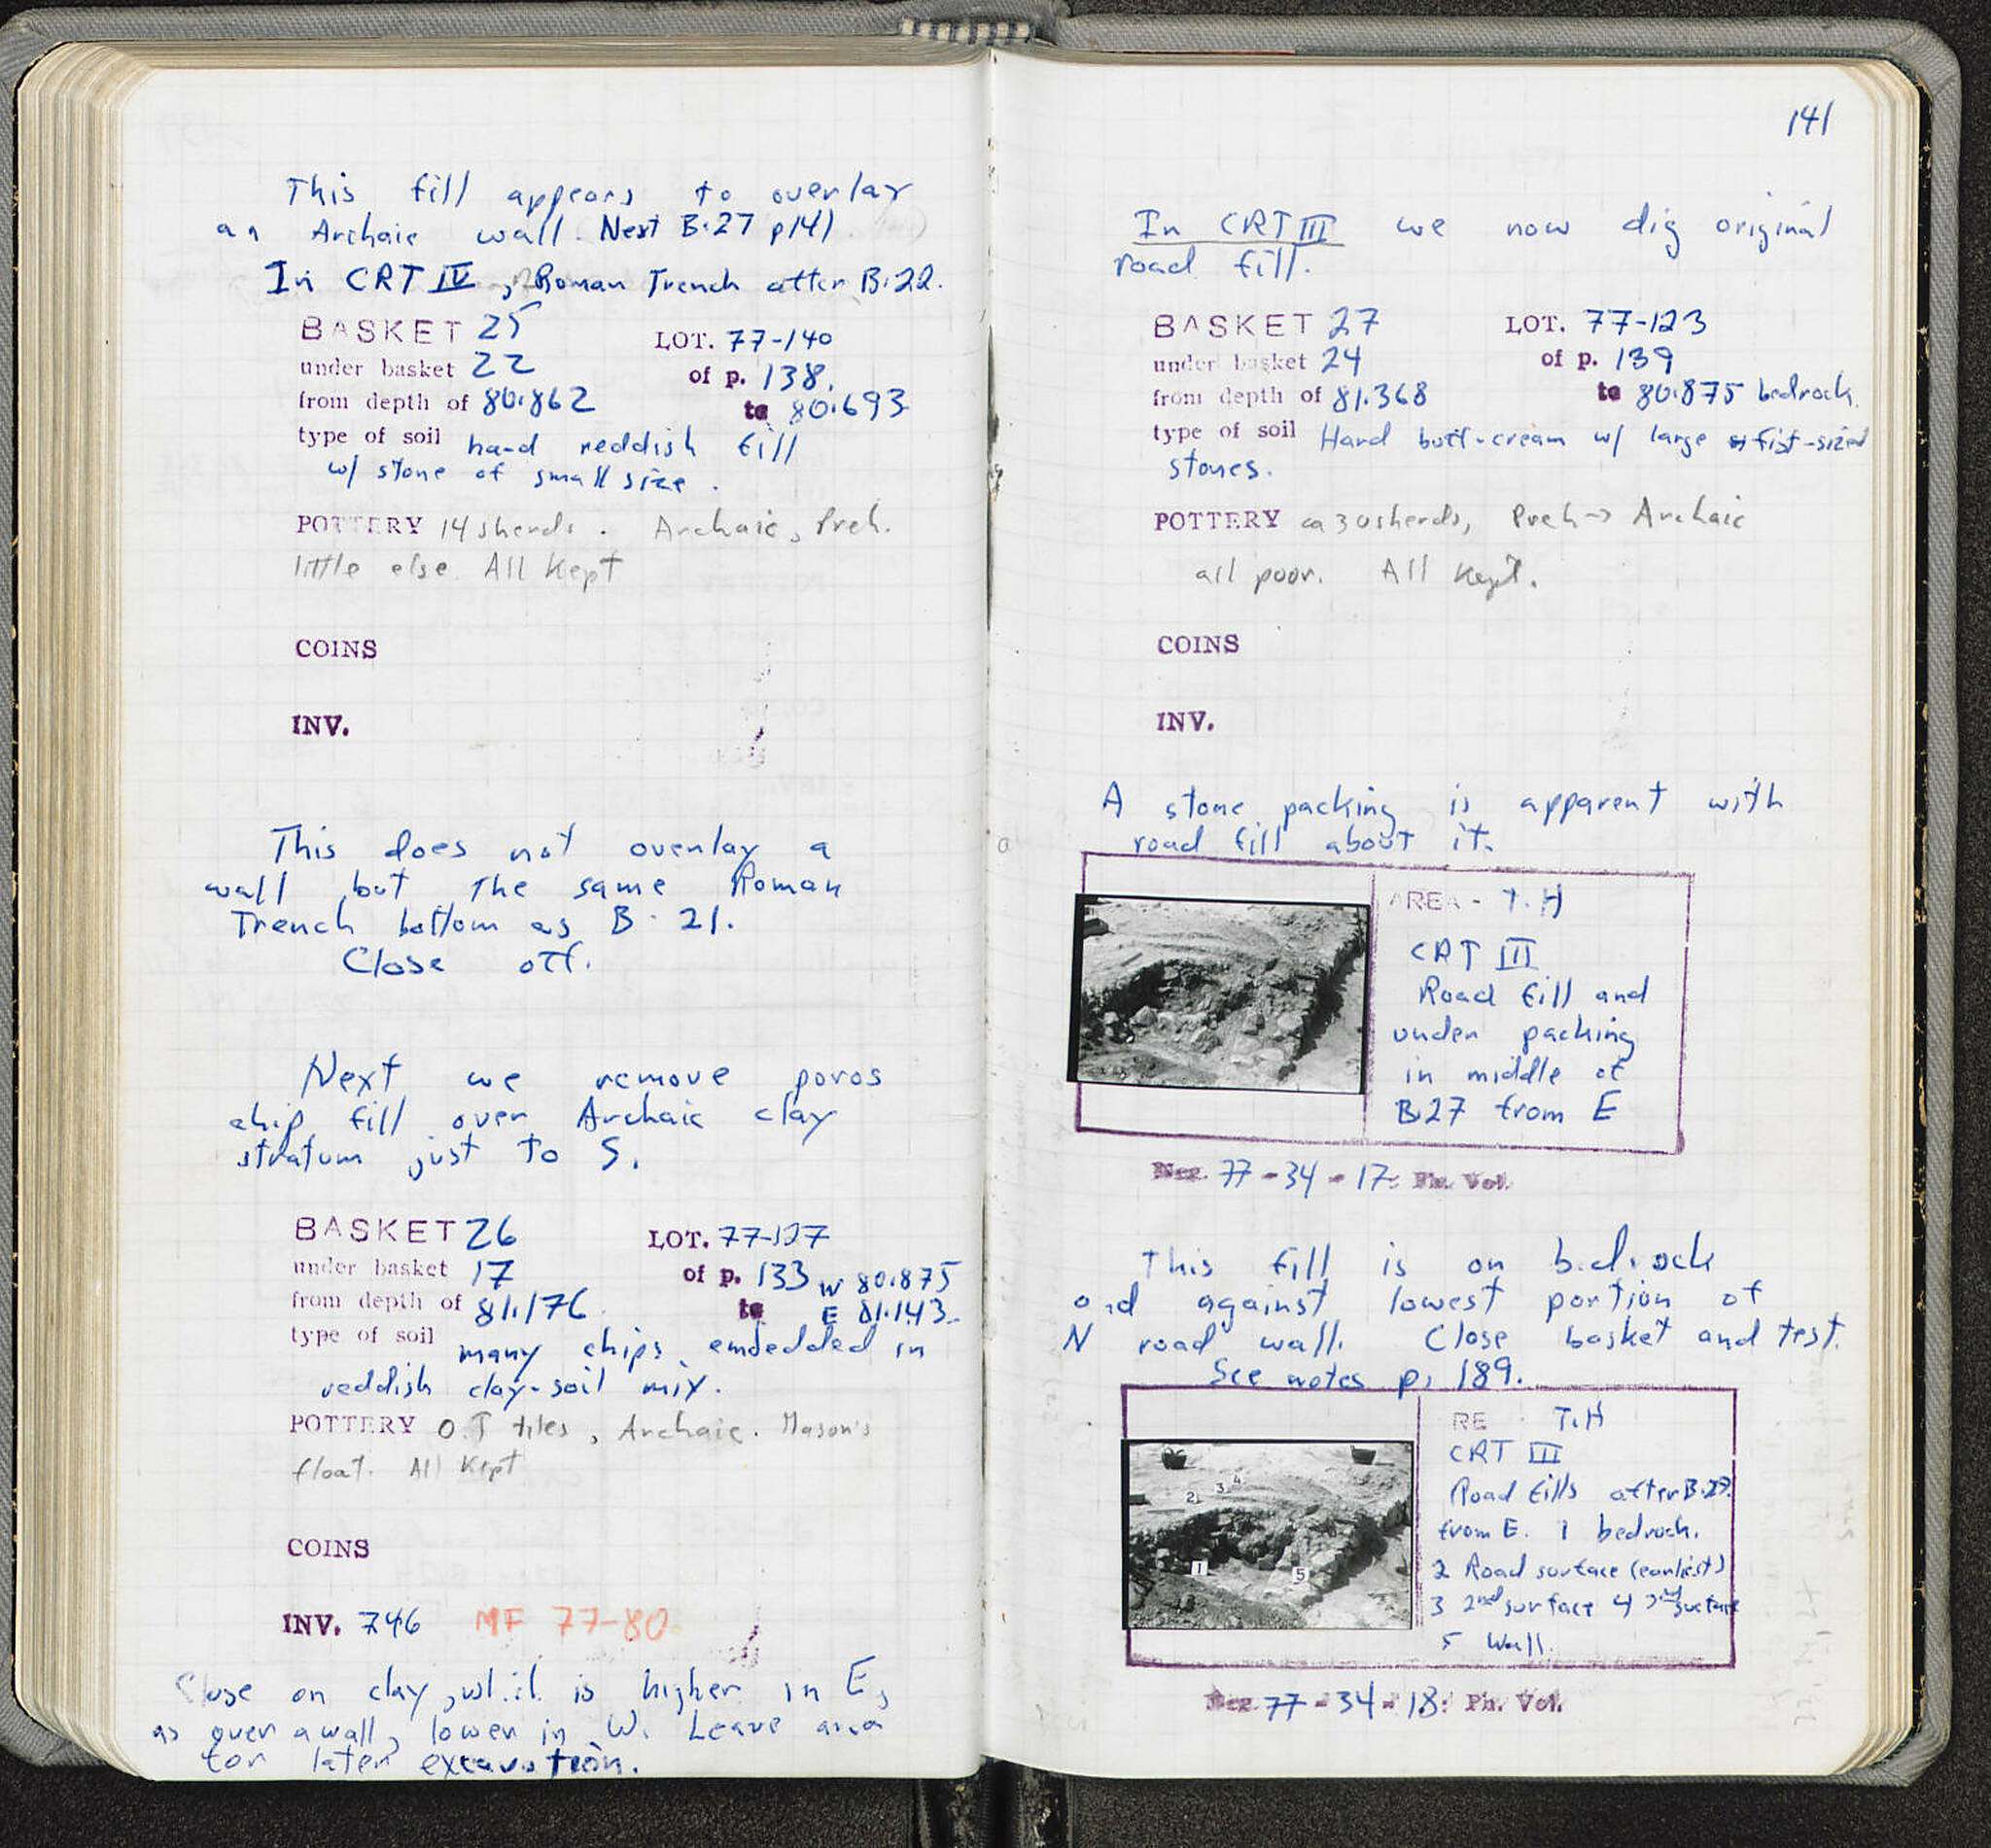 This fill appears to overlay
an Archaic wall. Next B.27 p141
In CRT IV, Roman Trench after B.22.
BASKET 25 LOT. 77-140
under basket 22 of p. 138.
from depth of 80.862 to 80.693
type of soil hard reddish fill
w/ stone of small size.
POTTERY 14 sherds. Archaic, Preh.
little else. All Kept
COINS
INV.
This does not overlay a
wall, but the same Roman
Trench bottom as B. 21.
Close off.
Next we remove poros
chip fill over Archaic clay
stratum just to S.
BASKET 26 LOT. 77-127
under basket 17 of p. 133 W 80.875
from depth of 81.176 to E 81.143.
type of soil many chips embedded in
reddish clay-soil mix.
POTTERY O.T tiles, Archaic. Mason's
float. All Kept
COINS
INV. 746 MF 77-80
Close on clay, which is higher in E,
as over a wall, lower in W. Leave area
for later excavation.
141
In CRT III we now dig original
road fill.
BASKET 27 LOT. 77-123
under basket 24 of p. 139
from depth of 81.368 to 80.875 bedrock.
type of soil Hard buff-cream w/ large fist-sized
stones.
POTTERY ca 30 sherds, Preh → Archaic
all poor. All Kept.
COINS
INV.
A stone packing is apparent with
road fill about it.
AREA - T.H
CRT III
Road fill and
under packing
in middle of
B.27 from E
Neg. 77-34-17: Ph. Vol.
This fill is on bedrock
and against lowest portion of
N road wall. Close basket and test.
See notes p. 189.
RE T.H
CRT III
Road fills after B.27.
from E. 1 bedrock.
2 Road surface (earliest)
3 2nd surface 4 3rd surface
5 Wall.
2 3 4
1 5
Neg. 77-34-18: Ph. Vol.